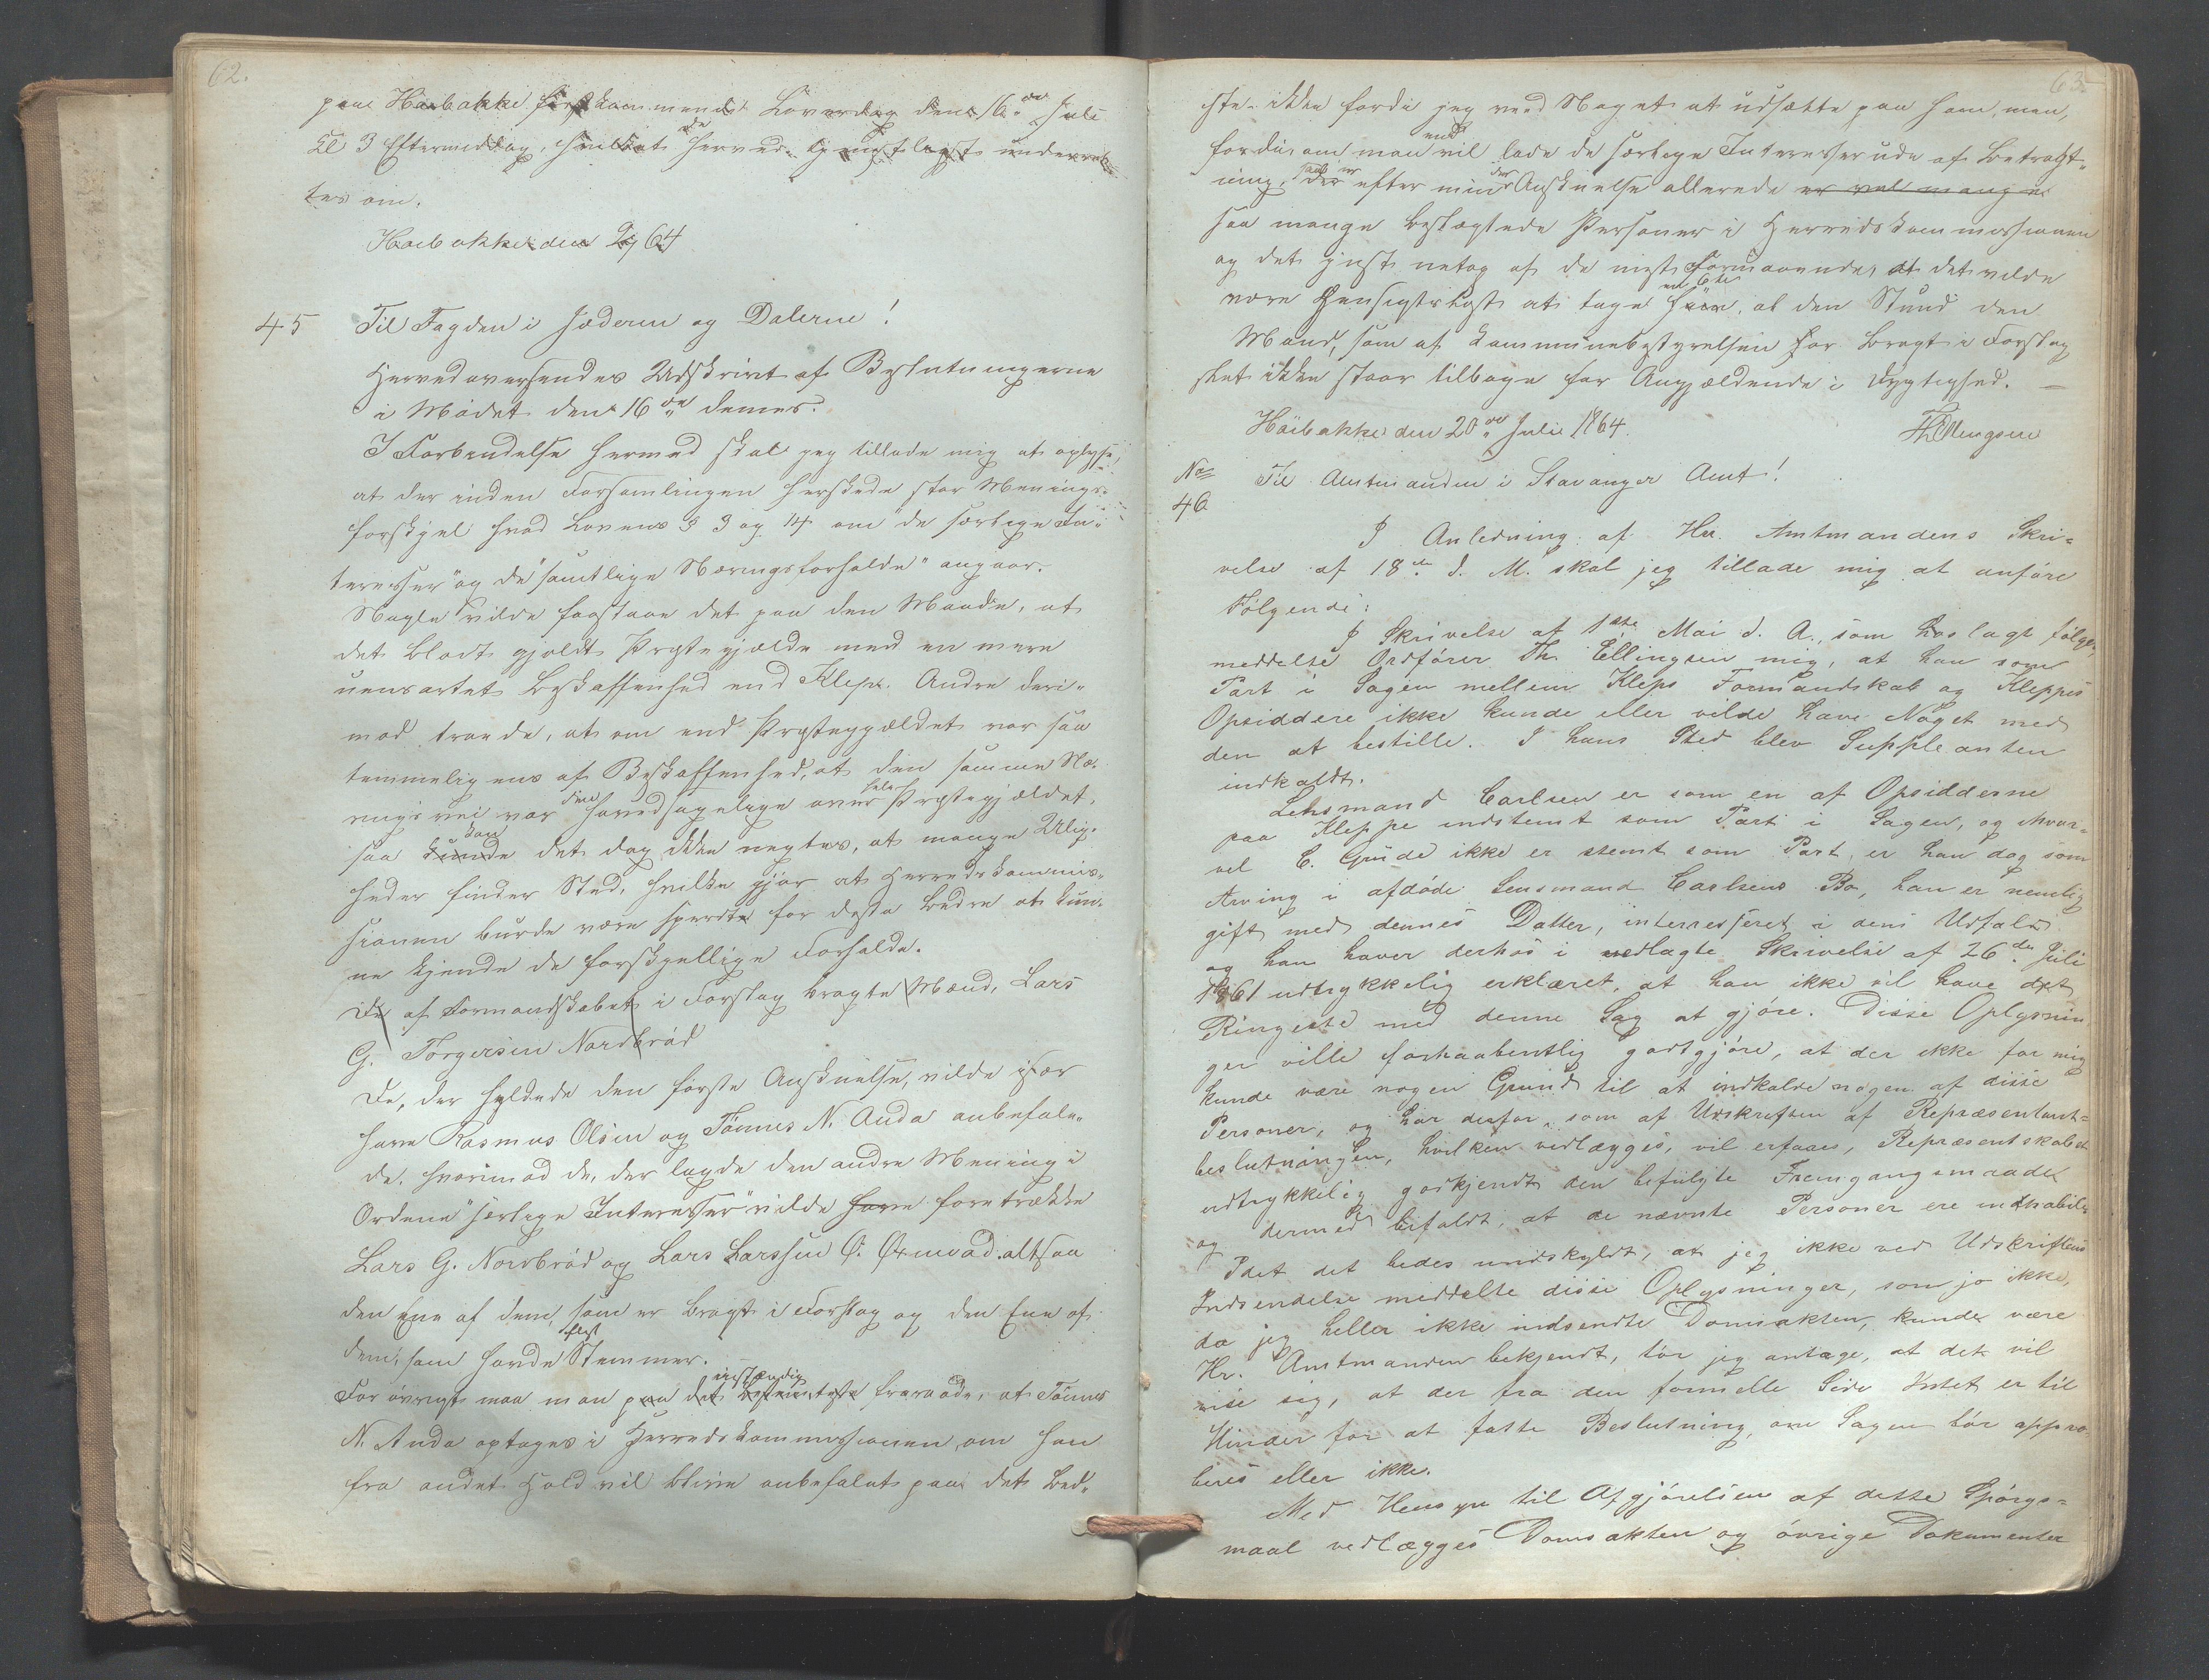 62.
paa Høibakke førstkommende Løverdag den 16de Juli
Kl 3 Eftermiddag, hvilket herved tjenstligst underret
tes om.
Høibakke den 2/7 64
45 Til Fogden i Jæderen og Dalerne!
Herved oversendes Udskrivt af Beslutningerne
i Mødet den 16de dennes.
I Forbindelse hermed skal jeg tillade mig at oplyse,
at der inden Forsamlingen herskede stor Menings-
forskjel hvad Lovens § 3 og 14 om "de særlige In-
teresser" og de "samtlige Næringsforholde" angaar.
Nogle vilde forstaae det paa den Maade, at
det blodt gjaldt Præstegjælde med en mere
uensartet Beskaffenhed end Klep. Andre deri-
mod troede, at om end Præstegjældet var saa
temmelig ens af Beskaffenhed, at den samme Næ-
ringsvei var den hovedsagelige over hele Præstegjældet,
saa kunde kan det dog ikke negtes, at mange Ulig-
heder finder Sted, hvilke gjør at Herredskommis-
sionen burde være spredte for desto bedre at kun-
ne kjende de forskjellige Forholde.
De af Formandskabet i Forslag bragte Mænd, Lars
G. Torgersen Nordbrød
De, der hyldede den første Anskuelse, vilde især
have Rasmus Olsen og Tønnes N. Anda anbefale-
de, hvorimod de, der lagde den andre Mening i
Ordene "særlige Interesser" vilde have foretrække
Lars G. Nordbrød og Lars Larssen Ø. Øxnevad altsaa
den Ene af dem, som er bragt i Forslag og den Ene af
dem, som havde flest Stemmer.
For øvrigt maa man paa det bestemteste instændig fraraade, at Tønnes
N. Anda optages i Herredskommissionen, om han
fra andet Hold vil blive anbefalet paa det bed-
63.
ste - ikke fordi jeg veed Noget at udsætte paa ham, men,
fordi om man end vil lade de særlige Interesser ude af Betragt-
ning, saa er der efter min Anskuelse allerede er vel mange
saa mange beslægtede Personer i Herredskommissionen
og det just netop af de mest formaaende, at det vilde
være Hensigtsløst at tage en 6te, al den Stund den
Mand, som af Kommunebestyrelsen har bragt i Forslag
slet ikke staar tilbage for Angjældende i Dygtighed. —
Høibakke den 20de Julie 1864. Th Ellingsen
No
46
Til Amtmanden i Stavanger Amt!
I Anledning af Hr. Amtmandens Skri-
velse af 18de d. M. skal jeg tillade mig at anføre
Følgende:
I Skrivelse af 1ste Mai d. A., som hoslagt følger,
meddelte Ordfører Th. Ellingsen mig, at han som
Part i Sagen mellem Kleps Formandskab og Kleppes
Opsiddere ikke kunde eller vilde have Noget med
den at bestille. I hans Sted blev Suppleanten
indkaldt.
Lensmand Carlsen er som en af Opsidderne
paa Kleppe indstemt som Part i Sagen, og hvor-
vel C. Gude ikke er stemt som Part, er han dog som
Arving i afdøde Lensmand Carlsens Bo, han er nemlig
gift med dennes Datter, interresseret i dens Udfald
og han haver derhos i vedlagte Skrivelse af 26de Juli
1861 udtrykkelig erklæret, at han ikke vil have det
Ringeste med denne Sag at gjøre. Disse Oplysnin
ger ville forhaabentlig godtgjøre, at der ikke for mig
kunde være nogen Grund til at indkalde nogen af disse
Personer, og har derfor, som af Udskriften af Repræsentant-
beslutningen, hvilken vedlægges, vil erfares, Repræsentskabet
udtrykkelig godkjendt den befulgte Fremgangsmaade
og dermed bifaldt, at de nævnte Personer ere inhabile.
Idet det bedes undskyldt, at jeg ikke ved Udskriftens
Indsendelse meddelte disse Oplysninger, som jo ikke,
da jeg heller ikke indsendte Domsakten, kunde være
Hr. Amtmanden bekjendt, tør jeg antage, at det vil
vise sig, at der fra den formelle Side Intet er til
Hinder for at fatte Beslutning, om Sagen bør appro
beres eller ikke.
Med Hensyn til Afgjørelsen af dette Spørgs-
maal vedlægges Domsakten og øvrige Dokumenter